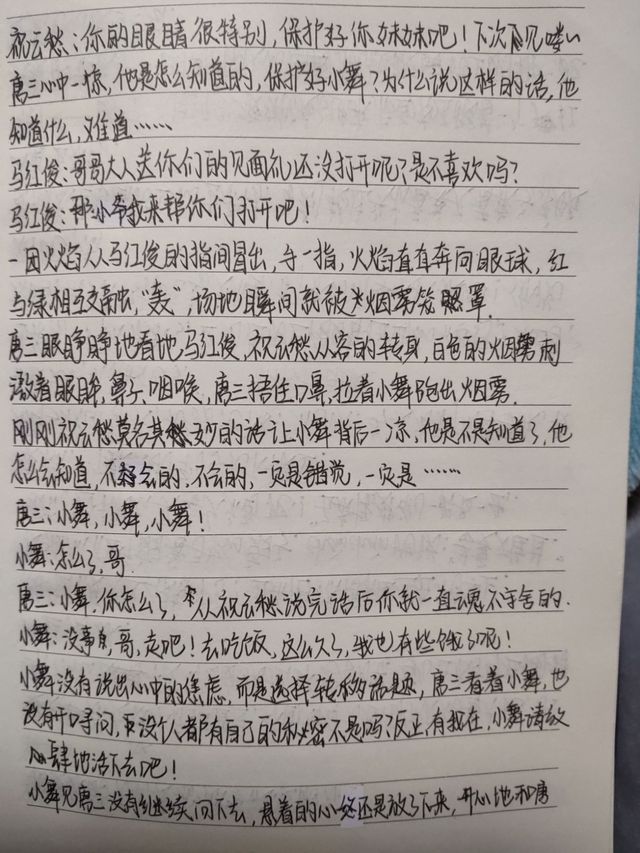 祝云愁：你的眼睛很特别，保护好你妹妹吧！下次再见喽～
唐三心中一惊，他是怎么知道的，保护好小舞？为什么说这样的话，他
知道什么，难道……
马红俊：哥哥大人送你们的见面礼还没打开呢？是不喜欢吗？
马红俊：那小爷我来帮你们打开吧！
一团火焰从马红俊的指间冒出，手一指，火焰直直奔向眼球，红
与绿相互交融，“轰”，场地瞬间就被烟雾笼罩.
唐三眼睁睁地看地马红俊，祝云愁从容的转身，白色的烟雾刺
激着眼眸，鼻子，咽喉，唐三捂住口鼻，拉着小舞跑出烟雾.
刚刚祝云愁莫名其妙的话让小舞背后一凉，他是不是知道了，他
怎么会知道，不会的，不会的，一定是错觉，一定是……
唐三：小舞，小舞，小舞！
小舞：怎么了，哥.
唐三：小舞，你怎么了，从祝云愁说完话后你就一直魂不守舍的.
小舞：没事良，哥，走吧！去吃饭，这么久了，我也有些饿了呢！
小舞没有说出心中的焦虑，而是选择转移话题，唐三看着小舞，也
没有开口寻问，没个人都有自己的秘密不是吗？反正有我在，小舞请放
心肆地活下去吧！
小舞见唐三没有继续问下去，悬着的心还是放了下来，开心地和唐